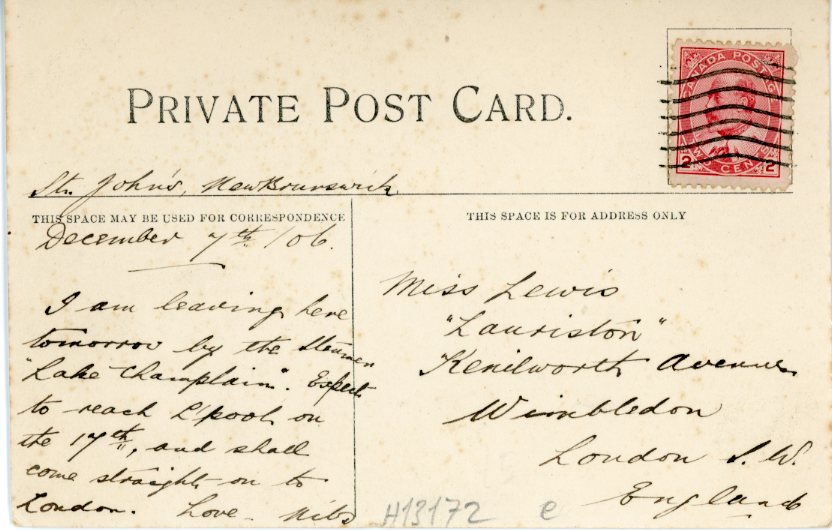 PRIVATE POST CARD.
CANADA POSTAGE
2 TWO CENTS 2
St. John's, New Brunswick
THIS SPACE MAY BE USED FOR CORRESPONDENCE
December 7th /06.
I am leaving here
tomorrow by the Steamer
"Lake Champlain". Expect
to reach L'pool on
the 17th, and shall
come straight on to
London. Love.
THIS SPACE IS FOR ADDRESS ONLY
Miss Lewis
"Lauriston"
Kenilworth Avenue
Wimbledon
London S.W.
England
H13172 e